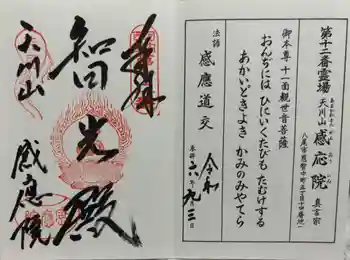 第十二番霊場
天川山 感応院 真言宗
八尾市恩智中町五丁目十四番地一
御本尊 十一面観世音菩薩
おんぢには ひにいくたびも たむけする
あかいどきよき かみのみやてら
法語
感應道交
奉拝 令和六年九月三日
奉拝
智光殿
天川山
感應院